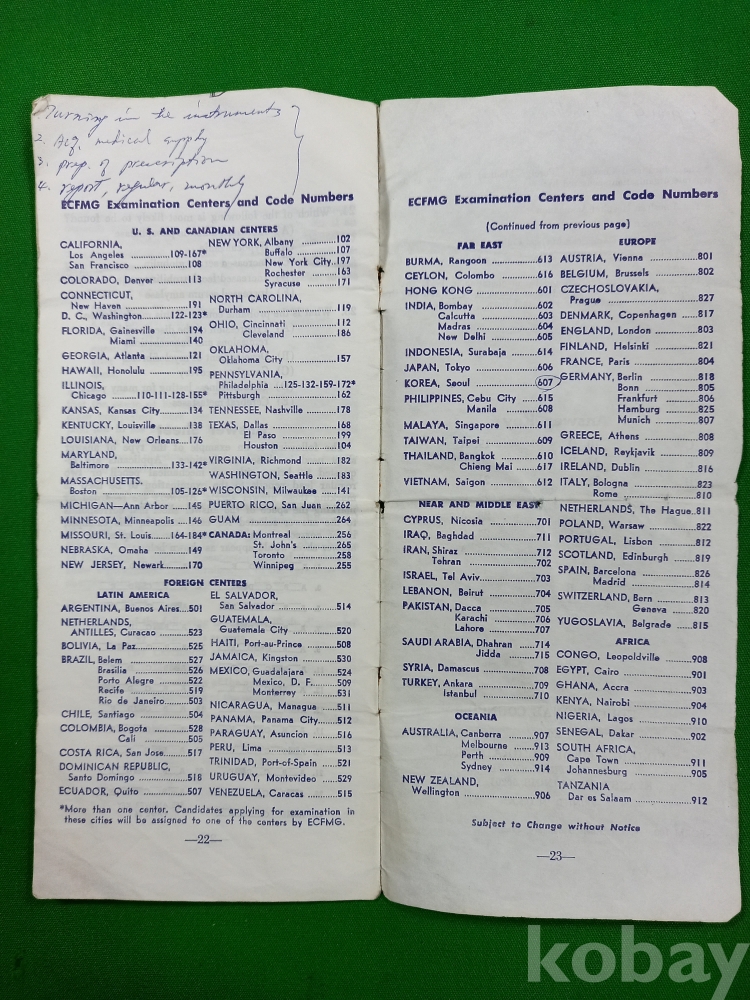 Turning in the instruments
2. Acq. medical supply
3. prep. of prescription
4. report, regular, monthly
ECFMG Examination Centers and Code Numbers
U. S. AND CANADIAN CENTERS
CALIFORNIA,
Los Angeles ..........109-167*
San Francisco ..........108
COLORADO, Denver ..........113
CONNECTICUT,
New Haven ..........191
D. C., Washington..........122-123*
FLORIDA, Gainesville ..........194
Miami ..........140
GEORGIA, Atlanta ..........121
HAWAII, Honolulu ..........195
ILLINOIS,
Chicago ..........110-111-128-155*
KANSAS, Kansas City..........134
KENTUCKY, Louisville ..........138
LOUISIANA, New Orleans....176
MARYLAND,
Baltimore ..........133-142*
MASSACHUSETTS.
Boston ..........105-126*
MICHIGAN—Ann Arbor ....145
MINNESOTA, Minneapolis ....146
MISSOURI, St. Louis......164-184*
NEBRASKA, Omaha ..........149
NEW JERSEY, Newark..........170
NEW YORK, Albany ..........102
Buffalo ..........107
New York City..197
Rochester ..........163
Syracuse ..........171
NORTH CAROLINA,
Durham ..........119
OHIO, Cincinnati ..........112
Cleveland ..........186
OKLAHOMA,
Oklahoma City ..........157
PENNSYLVANIA,
Philadelphia ..125-132-159-172*
Pittsburgh ..........162
TENNESSEE, Nashville ......178
TEXAS, Dallas ..........168
El Paso ..........199
Houston ..........104
VIRGINIA, Richmond ..........182
WASHINGTON, Seattle ......183
WISCONSIN, Milwaukee ....141
PUERTO RICO, San Juan ...262
GUAM ..........264
CANADA: Montreal ..........256
St. John's ..........265
Toronto ..........258
Winnipeg ..........255
FOREIGN CENTERS
LATIN AMERICA
ARGENTINA, Buenos Aires...501
NETHERLANDS,
ANTILLES, Curacao ..........523
BOLIVIA, La Paz..........525
BRAZIL, Belem ..........527
Brasilia ..........526
Porto Alegre ..........522
Recife ..........519
Rio de Janeiro..........503
CHILE, Santiago ..........504
COLOMBIA, Bogota ..........528
Cali ..........505
COSTA RICA, San Jose........517
DOMINICAN REPUBLIC,
Santo Domingo ..........518
ECUADOR, Quito ..........507
EL SALVADOR,
San Salvador ..........514
GUATEMALA,
Guatemala City ..........520
HAITI, Port-au-Prince ..........508
JAMAICA, Kingston ..........530
MEXICO, Guadalajara ..........524
Mexico, D. F...........509
Monterrey ..........531
NICARAGUA, Managua ......511
PANAMA, Panama City........512
PARAGUAY, Asuncion ........516
PERU, Lima ..........513
TRINIDAD, Port-of-Spain ....521
URUGUAY, Montevideo ......529
VENEZUELA, Caracas ........515
*More than one center. Candidates applying for examination in
these cities will be assigned to one of the centers by ECFMG.
—22—
ECFMG Examination Centers and Code Numbers
(Continued from previous page)
FAR EAST
BURMA, Rangoon ..........613
CEYLON, Colombo ..........616
HONG KONG ..........601
INDIA, Bombay ..........602
Calcutta ..........603
Madras ..........604
New Delhi ..........605
INDONESIA, Surabaja ........614
JAPAN, Tokyo ..........606
KOREA, Seoul ..........607
PHILIPPINES, Cebu City ......615
Manila ..........608
MALAYA, Singapore ..........611
TAIWAN, Taipei ..........609
THAILAND, Bangkok ..........610
Chieng Mai ......617
VIETNAM, Saigon ..........612
NEAR AND MIDDLE EAST
CYPRUS, Nicosia ..........701
IRAQ, Baghdad ..........711
IRAN, Shiraz ..........712
Tehran ..........702
ISRAEL, Tel Aviv..........703
LEBANON, Beirut ..........704
PAKISTAN, Dacca ..........705
Karachi ..........706
Lahore ..........707
SAUDI ARABIA, Dhahran ....714
Jidda ........715
SYRIA, Damascus ..........708
TURKEY, Ankara ..........709
Istanbul ..........710
OCEANIA
AUSTRALIA, Canberra ........907
Melbourne ......913
Perth ..........909
Sydney ..........914
NEW ZEALAND,
Wellington ..........906
EUROPE
AUSTRIA, Vienna ..........801
BELGIUM, Brussels ..........802
CZECHOSLOVAKIA,
Prague ..........827
DENMARK, Copenhagen ......817
ENGLAND, London ..........803
FINLAND, Helsinki ..........821
FRANCE, Paris ..........804
GERMANY, Berlin ..........818
Bonn ..........805
Frankfurt ..........806
Hamburg ..........825
Munich ..........807
GREECE, Athens ..........808
ICELAND, Reykjavik ..........809
IRELAND, Dublin ..........816
ITALY, Bologna ..........823
Rome ..........810
NETHERLANDS, The Hague..811
POLAND, Warsaw ..........822
PORTUGAL, Lisbon ..........812
SCOTLAND, Edinburgh ........819
SPAIN, Barcelona ..........826
Madrid ..........814
SWITZERLAND, Bern ..........813
Geneva ......820
YUGOSLAVIA, Belgrade ......815
AFRICA
CONGO, Leopoldville ........908
EGYPT, Cairo ..........901
GHANA, Accra ..........903
KENYA, Nairobi ..........904
NIGERIA, Lagos ..........910
SENEGAL, Dakar ..........902
SOUTH AFRICA,
Cape Town ..........911
Johannesburg ..........905
TANZANIA
Dar es Salaam ..........912
Subject to Change without Notice
—23—
kobay